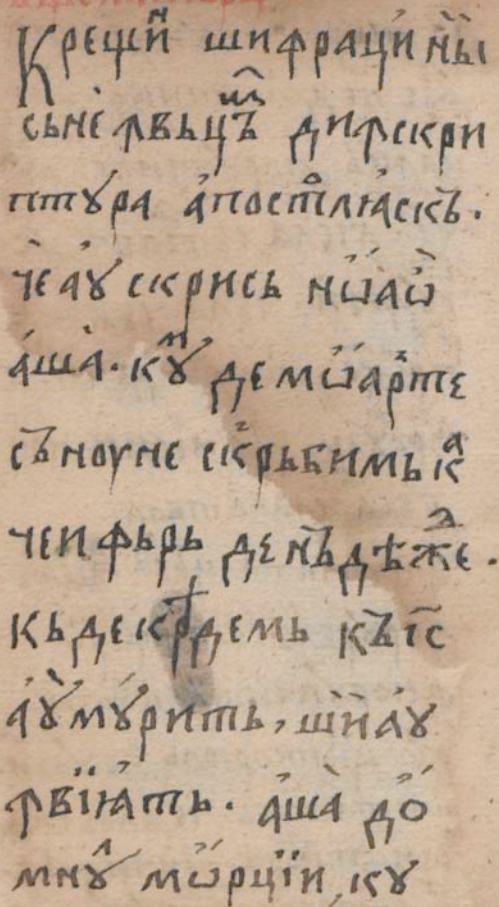 Крещиⁿ шифраци́и ны̀
сьне ꙟвьцъⷨ диꙟскри
птꙋра а҆постⷪлꙗ́скъ.
че аꙋ скрись нѡ́аѡ̀
а҆ша̀. кꙋⷨ де мѡ́арⷮте
съ ноуне скрьбимь кⷶ
чеи фьрь де нъдѣжⷣе.
кь декрⷷдемь къ і҃с
а҆ꙋ мꙋ́рить, шѝ аꙋ
ꙟвї꙼ꙗть. а҆ша̀ до́
мнꙋⷧ мѡ́рцїи кꙋ